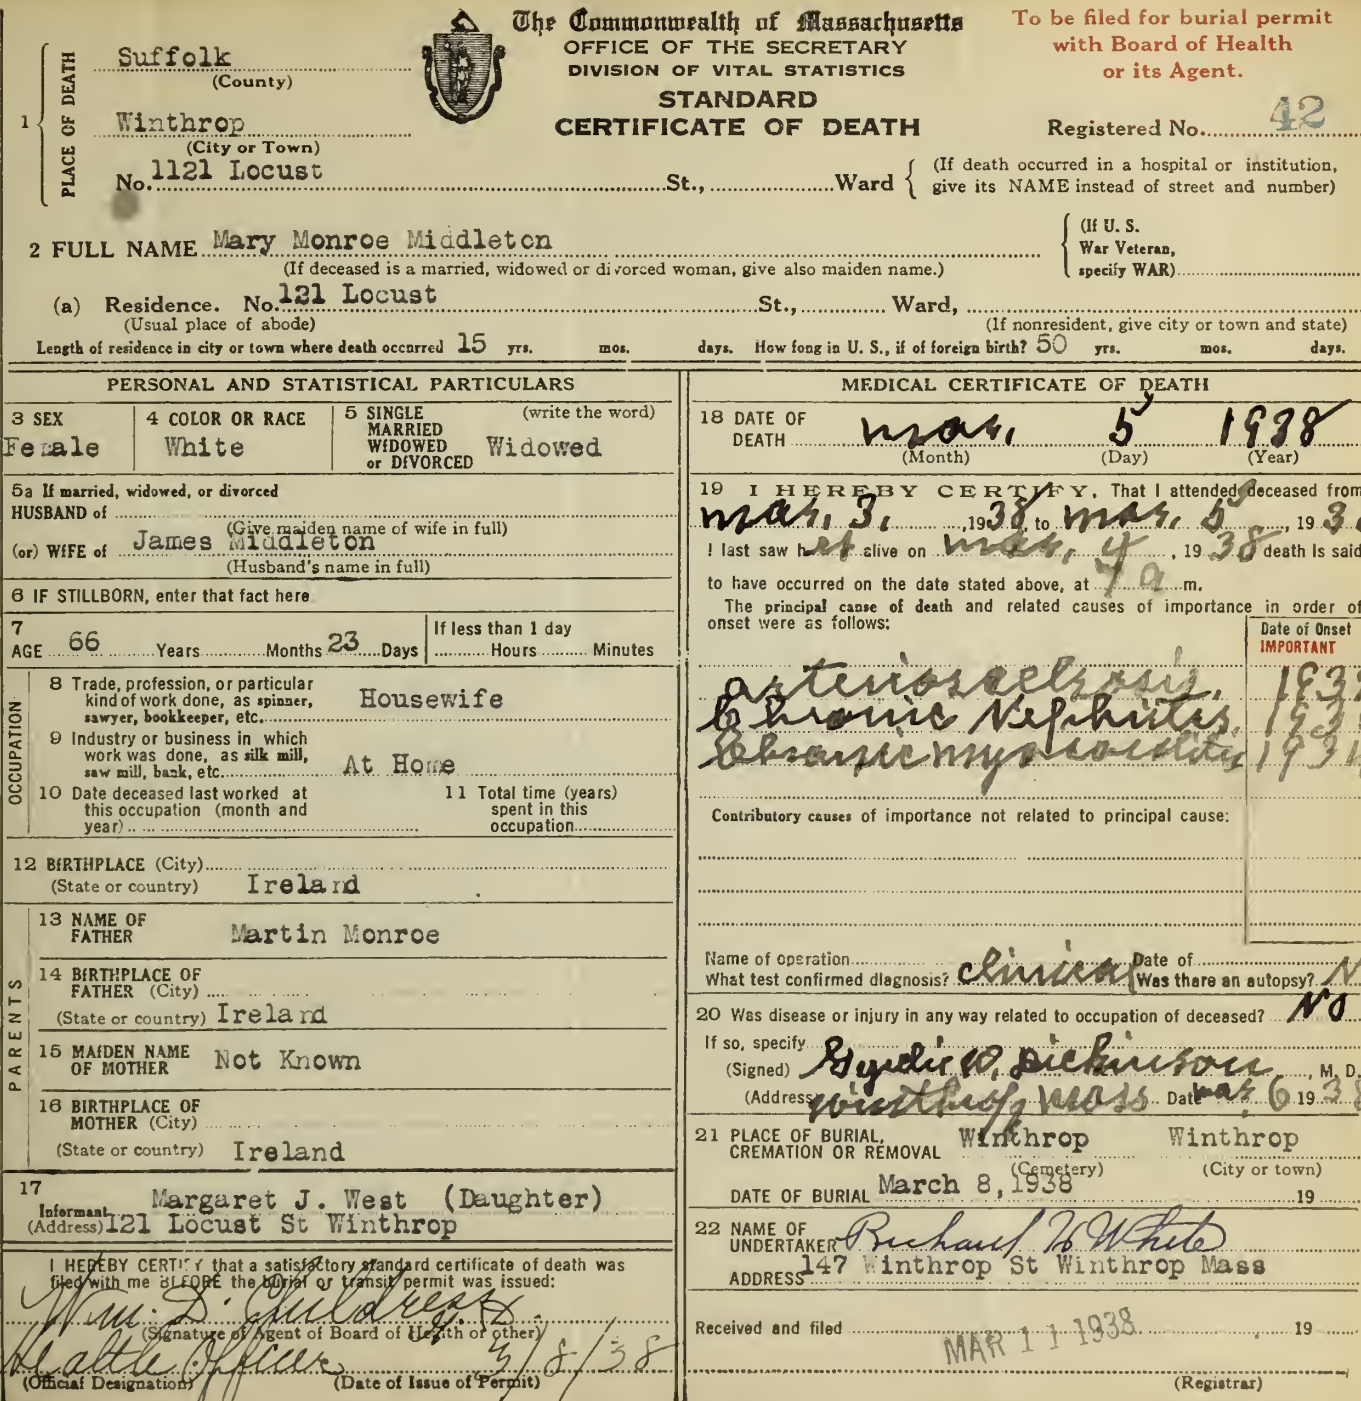 The Commonwealth of Massachusetts
OFFICE OF THE SECRETARY
DIVISION OF VITAL STATISTICS
STANDARD
CERTIFICATE OF DEATH
To be filed for burial permit
with Board of Health
or its Agent.
Registered No. 42
1 PLACE OF DEATH
Suffolk
(County)
Winthrop
(City or Town)
No. 1121 Locust St., Ward
(If death occurred in a hospital or institution,
give its NAME instead of street and number)
2 FULL NAME Mary Monroe Middleton
(If deceased is a married, widowed or divorced woman, give also maiden name.)
(If U. S.
War Veteran,
specify WAR)
(a) Residence. No. 121 Locust St., Ward,
(Usual place of abode) (If nonresident, give city or town and state)
Length of residence in city or town where death occurred 15 yrs. mos. days. How long in U. S., if of foreign birth? 50 yrs. mos. days.
PERSONAL AND STATISTICAL PARTICULARS
3 SEX
Female
4 COLOR OR RACE
White
5 SINGLE (write the word)
MARRIED
WIDOWED Widowed
or DIVORCED
5a If married, widowed, or divorced
HUSBAND of
(Give maiden name of wife in full)
(or) WIFE of James Middleton
(Husband's name in full)
6 IF STILLBORN, enter that fact here
7
AGE 66 Years Months 23 Days
If less than 1 day
Hours Minutes
OCCUPATION
8 Trade, profession, or particular
kind of work done, as spinner, Housewife
sawyer, bookkeeper, etc.
9 Industry or business in which
work was done, as silk mill,
saw mill, bank, etc. At Home
10 Date deceased last worked at
this occupation (month and
year)
11 Total time (years)
spent in this
occupation
12 BIRTHPLACE (City)
(State or country) Ireland
PARENTS
13 NAME OF
FATHER Martin Monroe
14 BIRTHPLACE OF
FATHER (City)
(State or country) Ireland
15 MAIDEN NAME
OF MOTHER Not Known
16 BIRTHPLACE OF
MOTHER (City)
(State or country) Ireland
17
Informant Margaret J. West (Daughter)
(Address) 121 Locust St Winthrop
I HEREBY CERTIFY that a satisfactory standard certificate of death was
filed with me BEFORE the burial or transit permit was issued:
Wm. D. Childress
(Signature of Agent of Board of Health or other)
Health Officer 3/8/38
(Official Designation) (Date of Issue of Permit)
MEDICAL CERTIFICATE OF DEATH
18 DATE OF
DEATH Mar. 5 1938
(Month) (Day) (Year)
19 I HEREBY CERTIFY, That I attended deceased from
Mar. 3, 1938, to Mar. 5, 193
I last saw her alive on Mar. 4, 1938 death is said
to have occurred on the date stated above, at 7 a m.
The principal cause of death and related causes of importance in order of
onset were as follows:
Date of Onset
IMPORTANT
arteriosclerosis, 193
Chronic Nephritis 193
Chronic myocarditis 193
Contributory causes of importance not related to principal cause:
Name of operation Date of
What test confirmed diagnosis? clinical Was there an autopsy? N
20 Was disease or injury in any way related to occupation of deceased? NO
If so, specify
(Signed) Dickinson, M. D.
(Address Winthrop Mass Date Mar 6 1938
21 PLACE OF BURIAL,
CREMATION OR REMOVAL Winthrop Winthrop
(Cemetery) (City or town)
DATE OF BURIAL March 8, 1938 19
22 NAME OF
UNDERTAKER Richard H White
ADDRESS 147 Winthrop St Winthrop Mass
Received and filed MAR 11 1938 19
(Registrar)